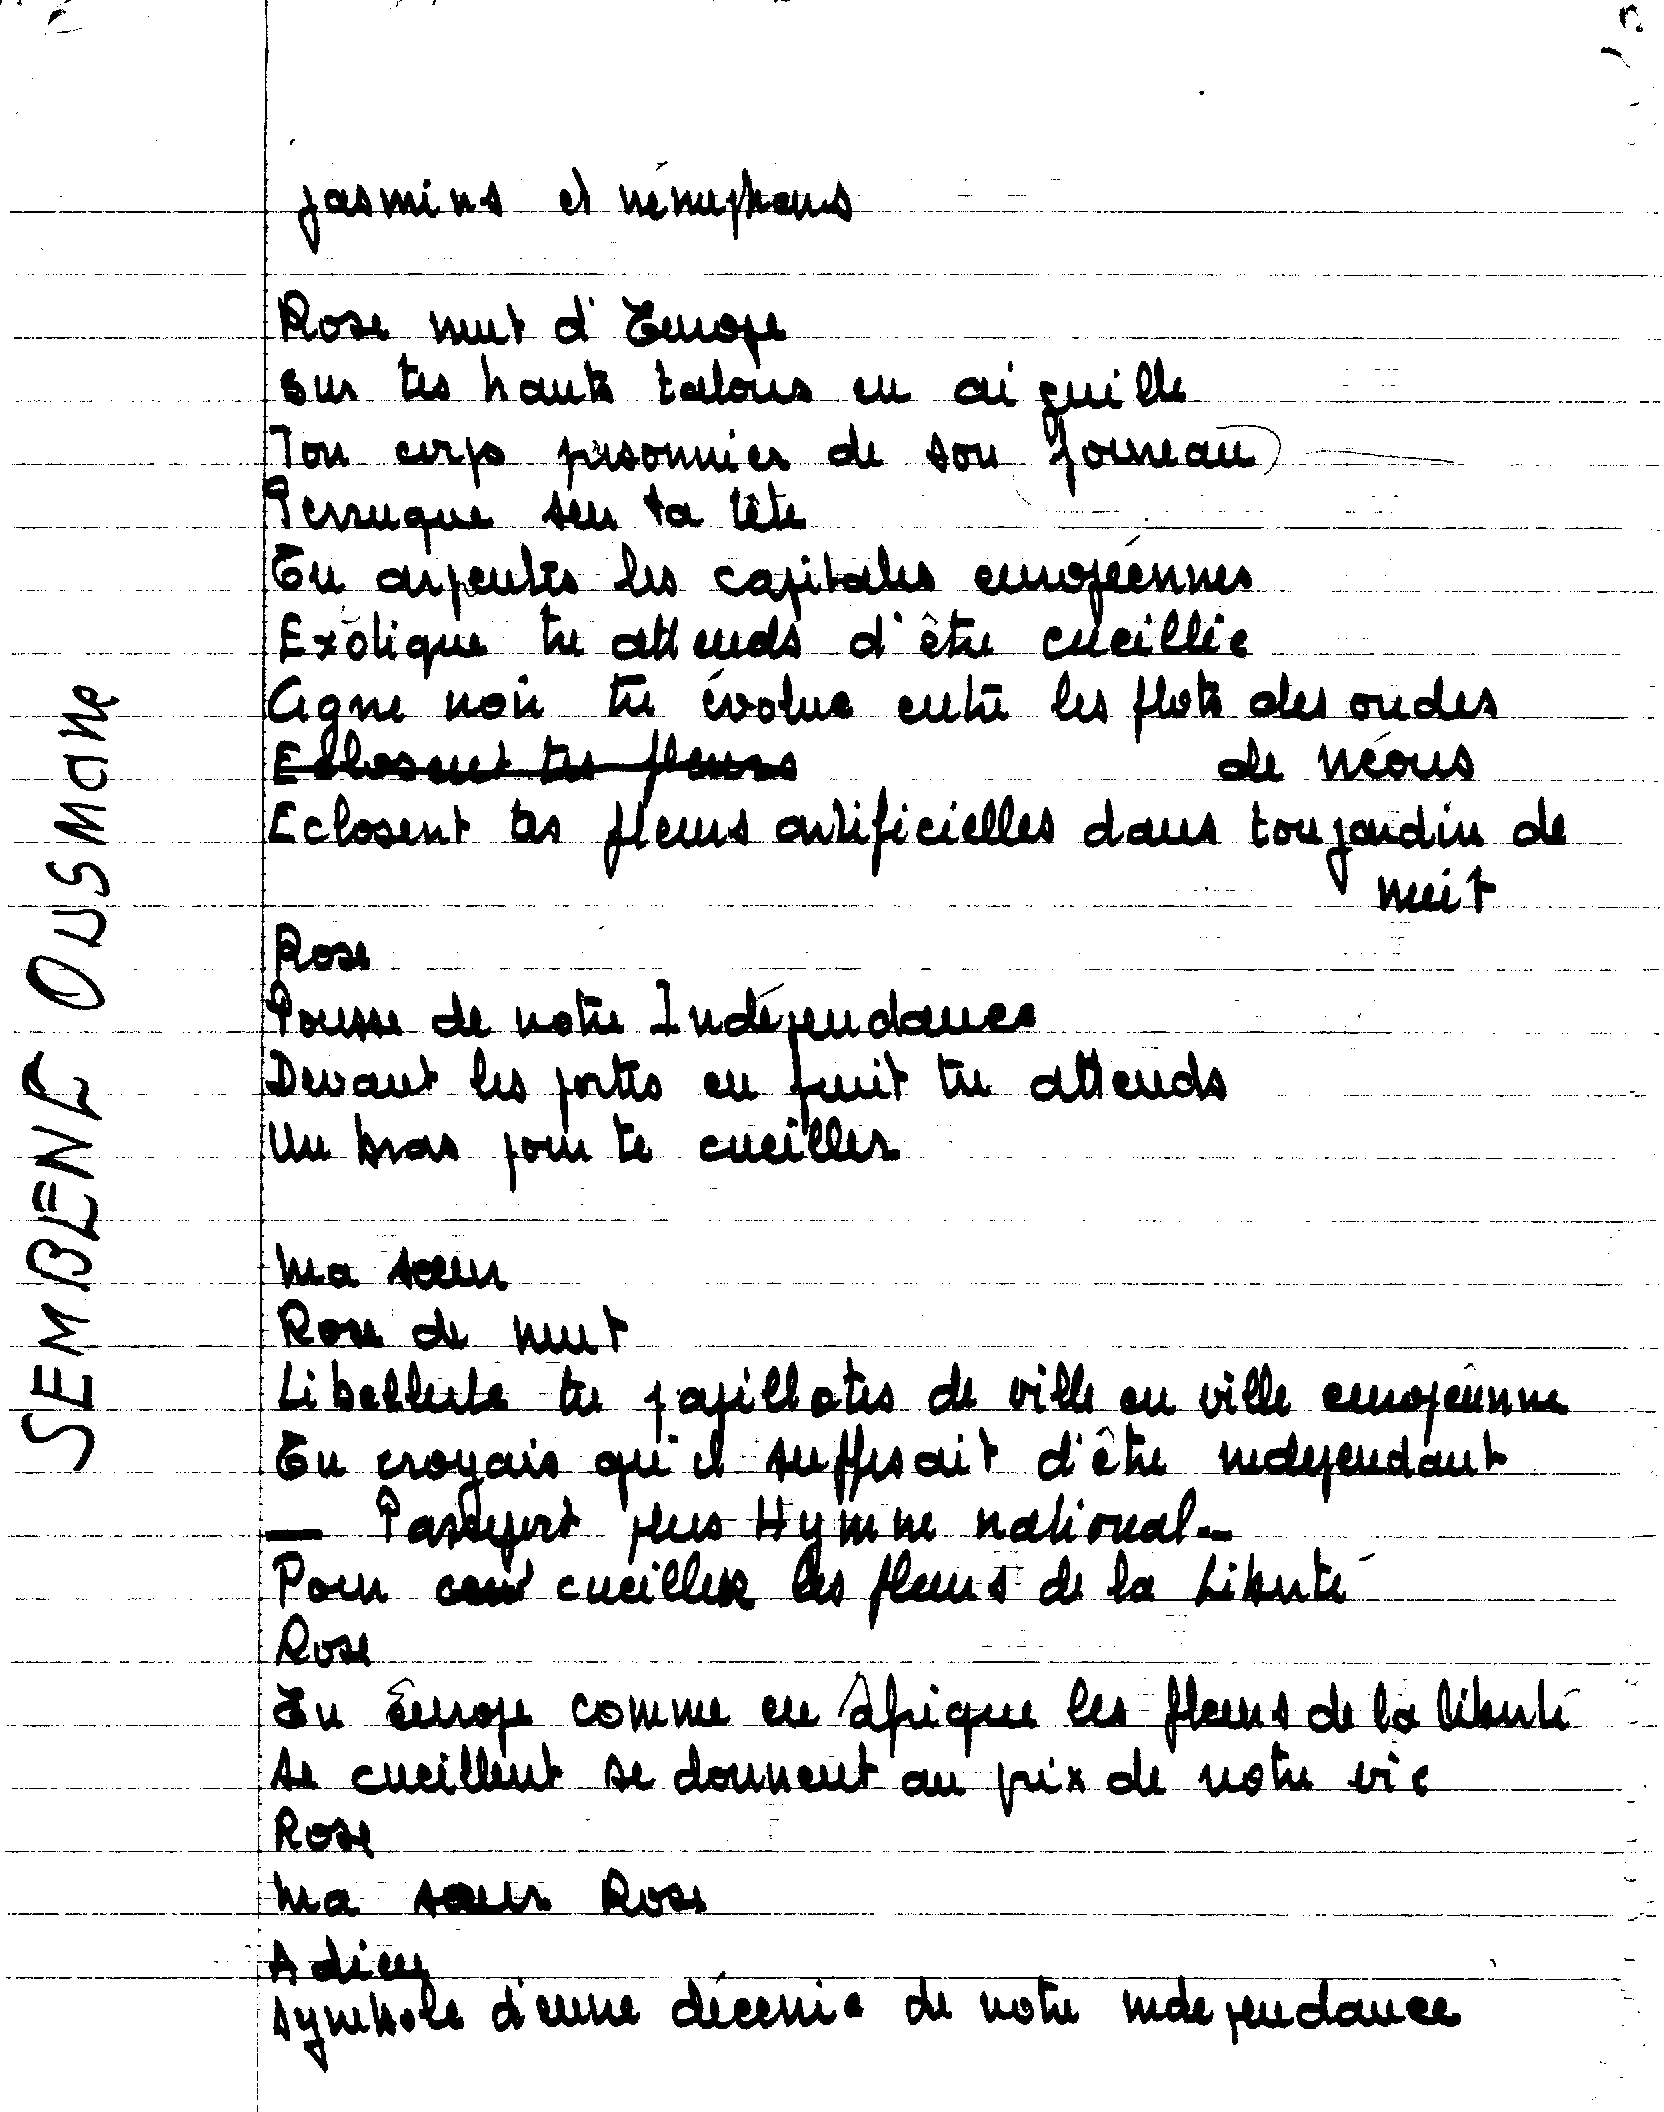 jasmins et nénuphars
Rose nuit d'Europe
sur tes hauts talons en aiguille
Ton corps prisonnier de son fourreau
Perruque sur ta tête
Tu arpentes les capitales européennes
Exotique tu attends d'être cueillie
Cigne noir tu évolue entre les flots des ondes
de néons
Eclosent tes fleurs
Eclosent tes fleurs artificielles dans ton jardin de
nuit
Rose
Pousse de notre Indépendance
Devant les portes en fruit tu attends
Un bras pour te cueiller
Ma sœur
Rose de nuit
Libellule tu papillotes de ville en ville européenne
Tu croyais qu'il suffisait d'être independant
— Passeport plus Hymne national —
Pour cueiller les fleurs de la Liberté
Rose
En Europe comme en Afrique les fleurs de la liberté
se cueillent se donnent au prix de notre vie
Rose
Ma sœur Rose
Adieu
symbole d'eune décenie de notre independance
SEMBENE OUSMANE